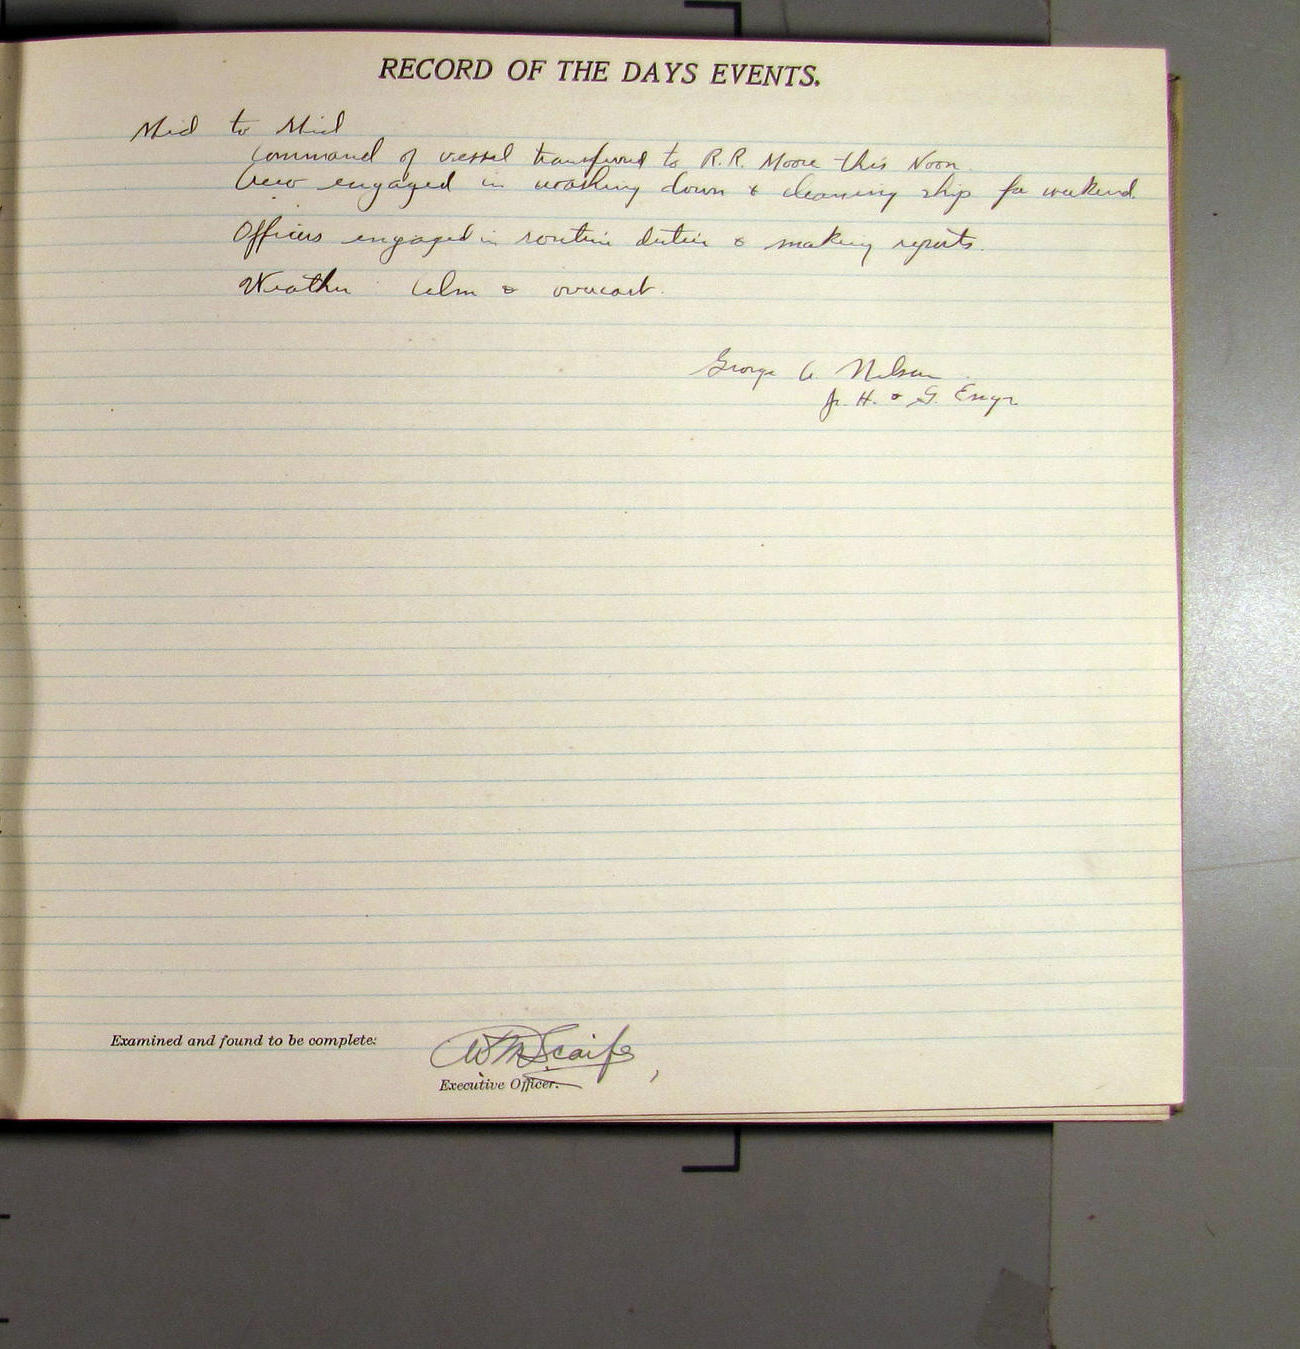 RECORD OF THE DAYS EVENTS.
Mid to Mid
Command of vessel transferred to R.R. Moore this Noon.
Crew engaged in washing down & cleaning ship for weekend.
Officers engaged in routine duties & making reports.
Weather calm & overcast.
George A. Nelson
Jr. H. & G. Engr
Examined and found to be complete:
W M Scaife
Executive Officer.